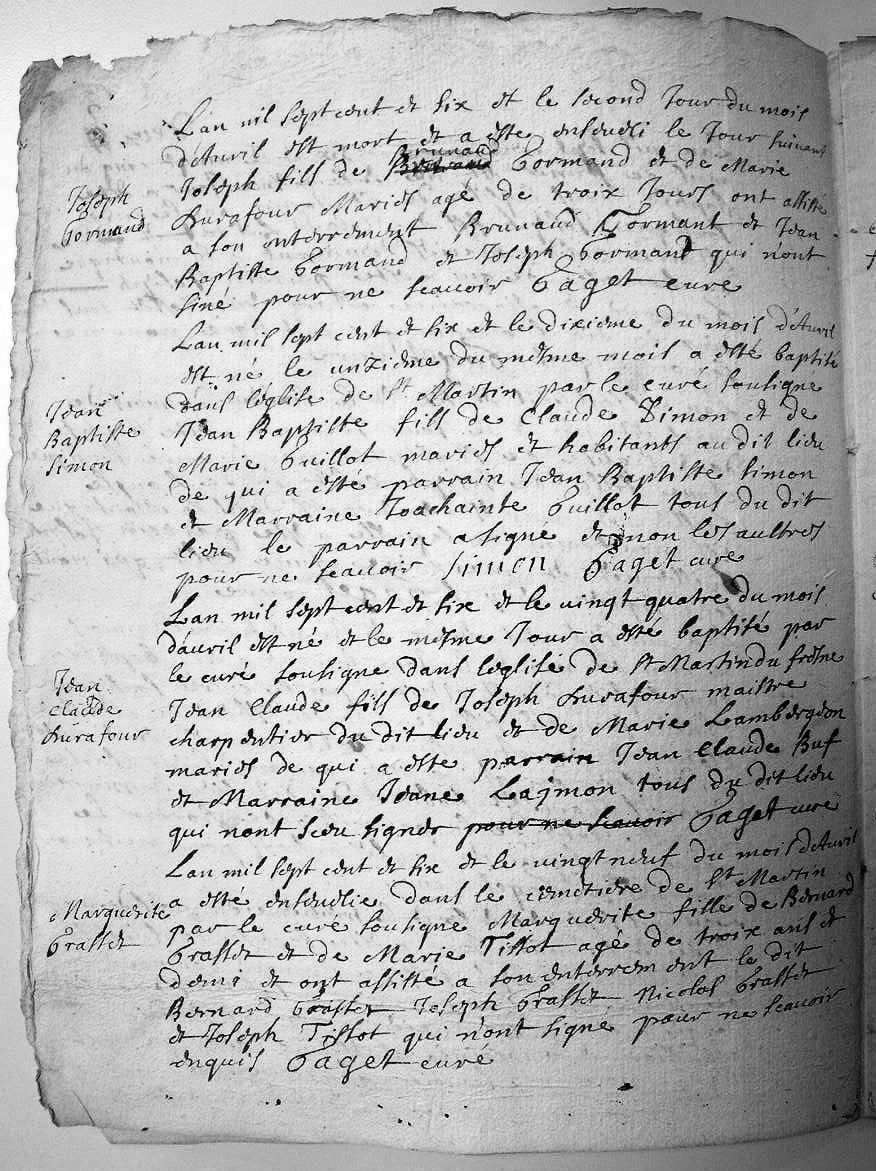 Lan mil sept cent et six et le second Jour du mois
d'Auril est mort et a este enseueli le Jour suiuant
Joseph fils de Brunand Gormand et de Marie
Joseph
Gormand
Durafour Mariés agé de troix Jours ont assiste
a son enterrement Brunand Gormant et Jean
Baptiste Gormand et Joseph Gormand qui n'ont
siné pour ne scauoir Gaget curé
Lan mil sept cent et six et le dixieme du mois d'Auril
est né le unzieme du mesme mois a esté baptisé
dans l'eglise de St Martin par le curé sousigne
Jean
Baptiste
Simon
Jean Baptiste fils de Claude Simon et de
Marie Guillot mariés et habitants au dit lieu
de qui a esté parrain Jean Baptiste Simon
et Marraine Joachainte Guillot tous du dit
lieu le parrain a signé et non les aultres
pour ne scauoir Simon Gaget cure
Lan mil sept cent et six et le vingt quatre du mois
d'auril est né et le mesme Jour a esté baptisé par
le curé sousigne dans leglise de St Martin du fresne
Jean
Claude
Durafour
Jean Claude fils de Joseph Durafour maistre
charpentier du dit lieu et de Marie Lambergeon
mariés de qui a este parrain Jean Claude Buf
et Marraine Jeane Lajmon tous du dit lieu
qui nont sceu signer pour ne scauoir Gaget curé
Lan mil sept cent et six et le vingt neuf du mois d'Auril
a esté enseuelie dans le cemetiere de St Martin
Marguerite
Grasset
par le curé sousigne Marguerite fille de Bernard
Grasset et de Marie Tissot agé de troix ans et
demi et ont assisté a son enterrement le dit
Bernard Grasset Joseph Grasset Nicolos Grasset
et Joseph Tissot qui n'ont signé pour ne scauoir
enquis Gaget curé